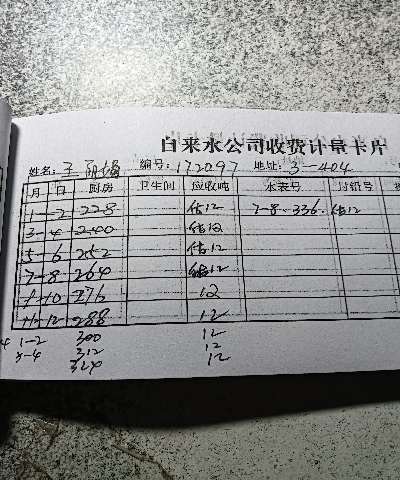 自来水公司收费计量卡片
姓名: 王 编号: 172097 地址: 3-404
月 日 厨房 卫生间 应收吨 水表号 封铅号
1-2 228 估12 7-8-336. 估12
3-4 240 估12
5-6 252 估12
7-8 264 估12
9-10 276 12
11-12 288 12
1-2 300 12
3-4 312 12
324 12